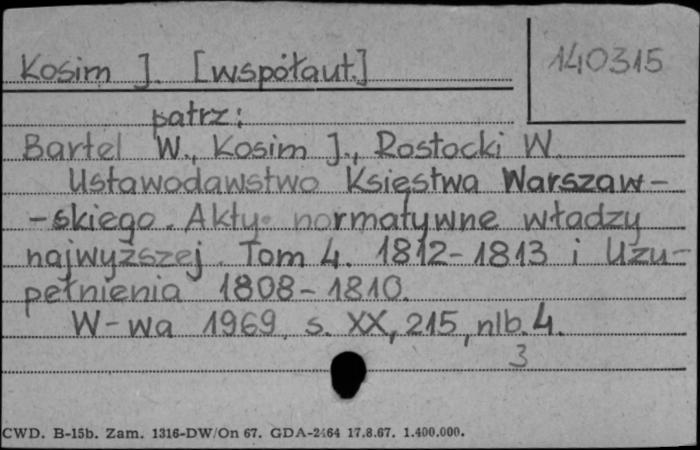 Kosim J. [współaut.]
140315
patrz:
Bartel W., Kosim J., Rostocki W.
Ustawodawstwo Księstwa Warszaw-
-skiego. Akty normatywne władzy
najwyższej. Tom 4. 1812-1813 i Uzu-
pełnienia 1808-1810.
W-wa 1969, s. XX, 215, nlb. 4.
3
CWD. B-15b. Zam. 1316-DW/On 67. GDA-2464 17.8.67. 1.400.000.